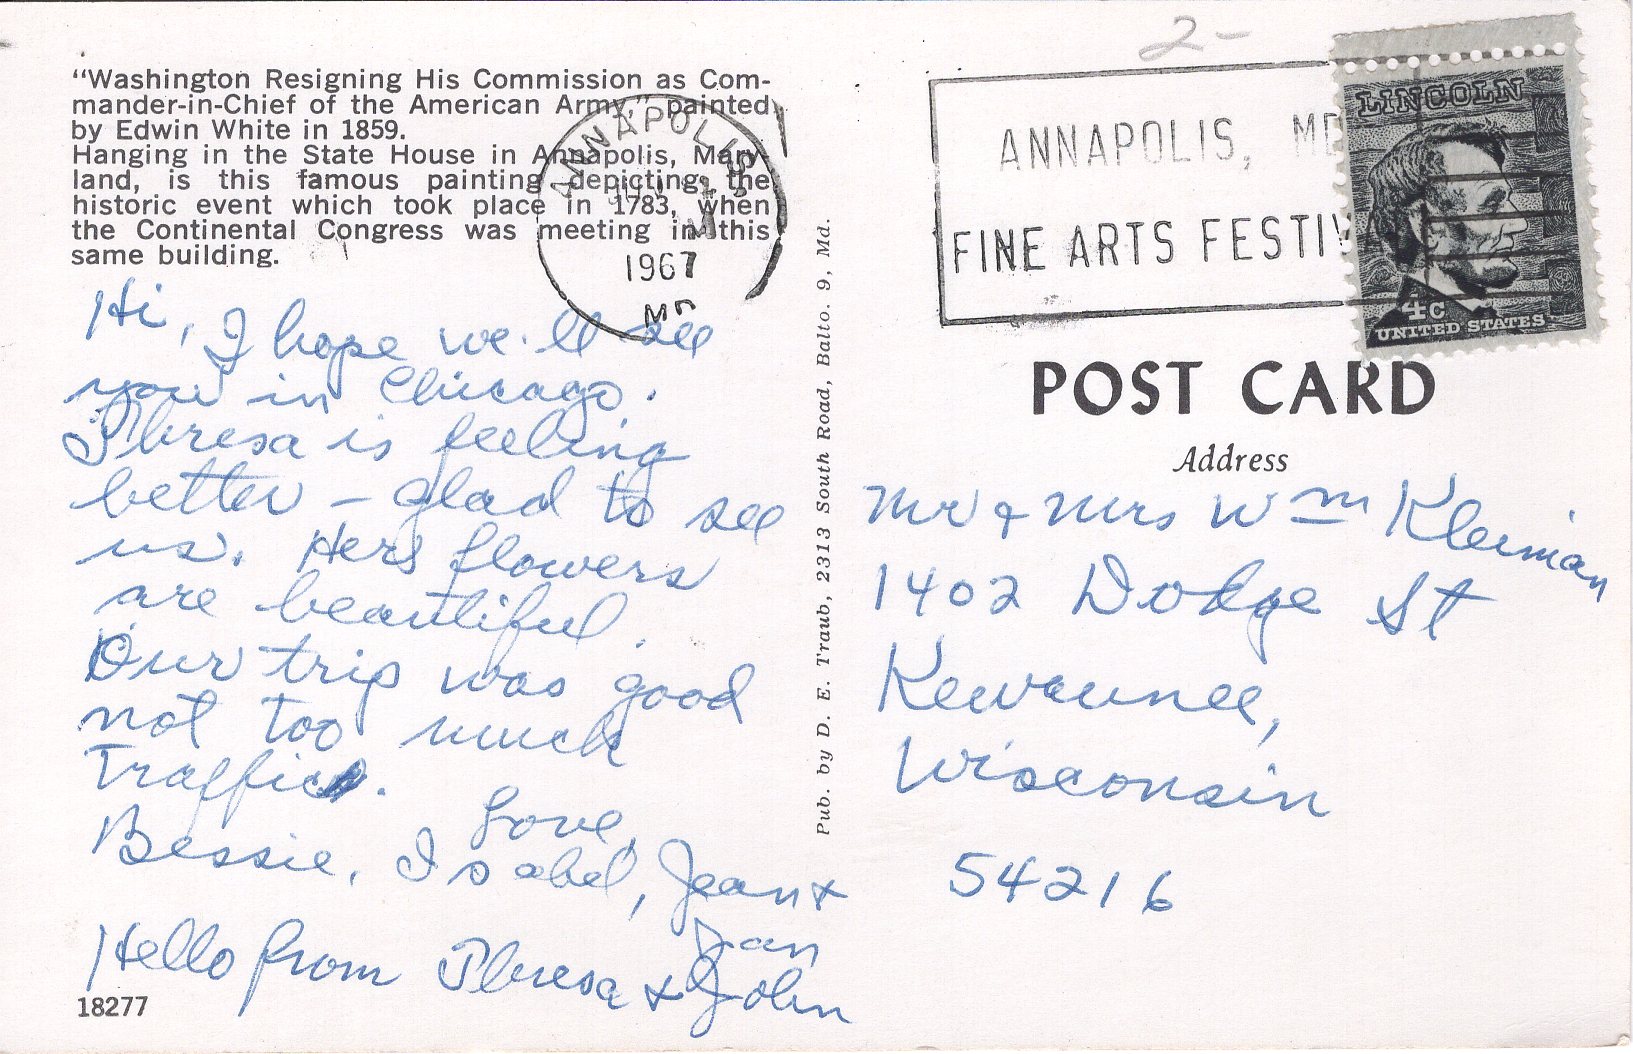 "Washington Resigning His Commission as Com-
mander-in-Chief of the American Army," painted
by Edwin White in 1859.
Hanging in the State House in Annapolis, Mary-
land, is this famous painting depicting the
historic event which took place in 1783, when
the Continental Congress was meeting in this
same building.
Hi, I hope we'll see
you in Chicago.
Theresa is feeling
better – glad to see
us. Hers flowers
are beautiful.
Our trip was good
not too much
Traffic.
Love,
Bessie, Isabel, Jean &
Jan
Hello from Theresa & John
18277
Pub. by D. E. Traub, 2313 South Road, Balto. 9, Md.
ANNAPOLIS
1967
MD
2-
ANNAPOLIS, MD
FINE ARTS FESTIV
LINCOLN
4c
UNITED STATES
POST CARD
Address
Mr & Mrs Wm Kleiman
1402 Dodge St
Kewaunee,
Wisconsin
54216